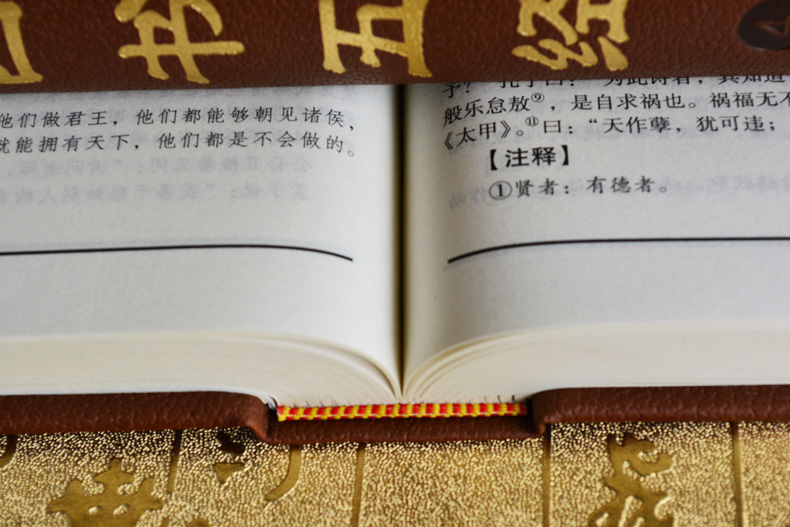 书五经
他们做君王，他们都能够朝见诸侯，
就能拥有天下，他们都是不会做的。
般乐怠敖⑨，是自求祸也。祸福无不
《太甲》⑪曰：“天作孽，犹可违；
【注释】
①贤者：有德者。